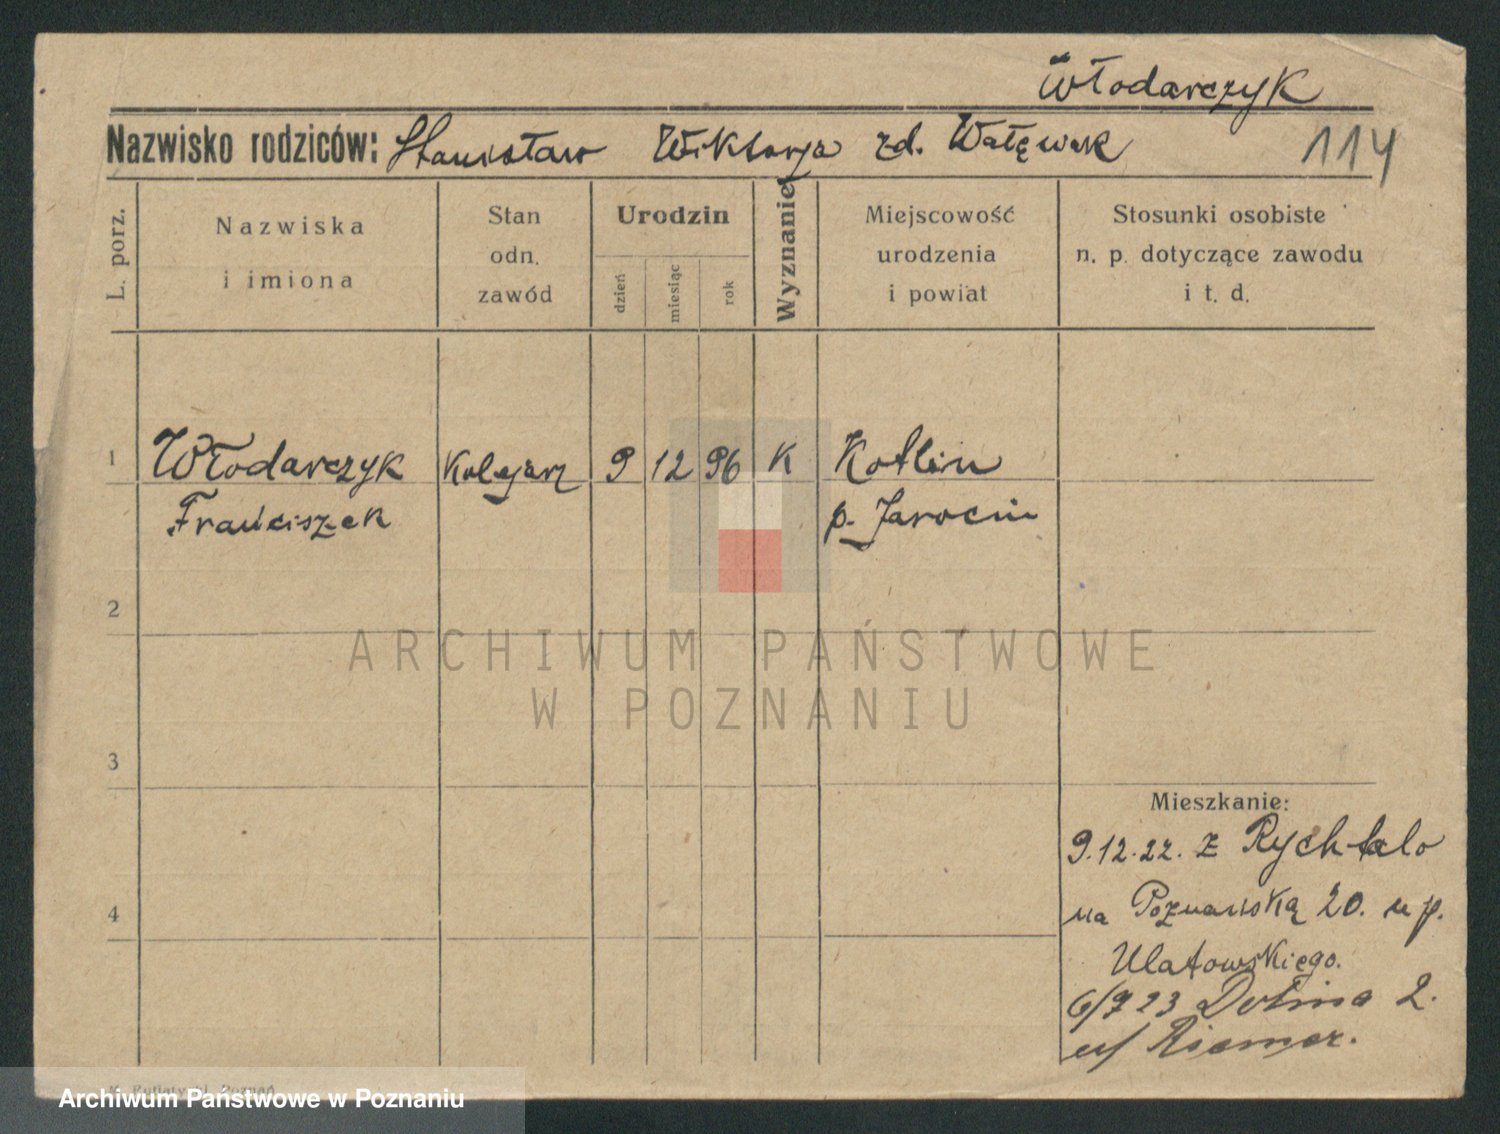 Włodarczyk
Nazwisko rodziców: Stanisław Wiktorja zd. Wałęwak
114
L. porz.
Nazwiska
i imiona
Stan
odn.
zawód
Urodzin
dzień
miesiąc
rok
Wyznanie
Miejscowość
urodzenia
i powiat
Stosunki osobiste
n. p. dotyczące zawodu
i t. d.
1 Włodarczyk Kolejarz 9 12 96 K Kotlin
Franciszek p. Jarocin
2
ARCHIWUM PAŃSTWOWE
W POZNANIU
3
Mieszkanie:
9.12.22. z Rychtalo
4
na Poznańską 20. u p.
Ulatowskiego.
6/7 23 Dolina 2.
u/ Riemer.
Poznań
Archiwum Państwowe w Poznaniu